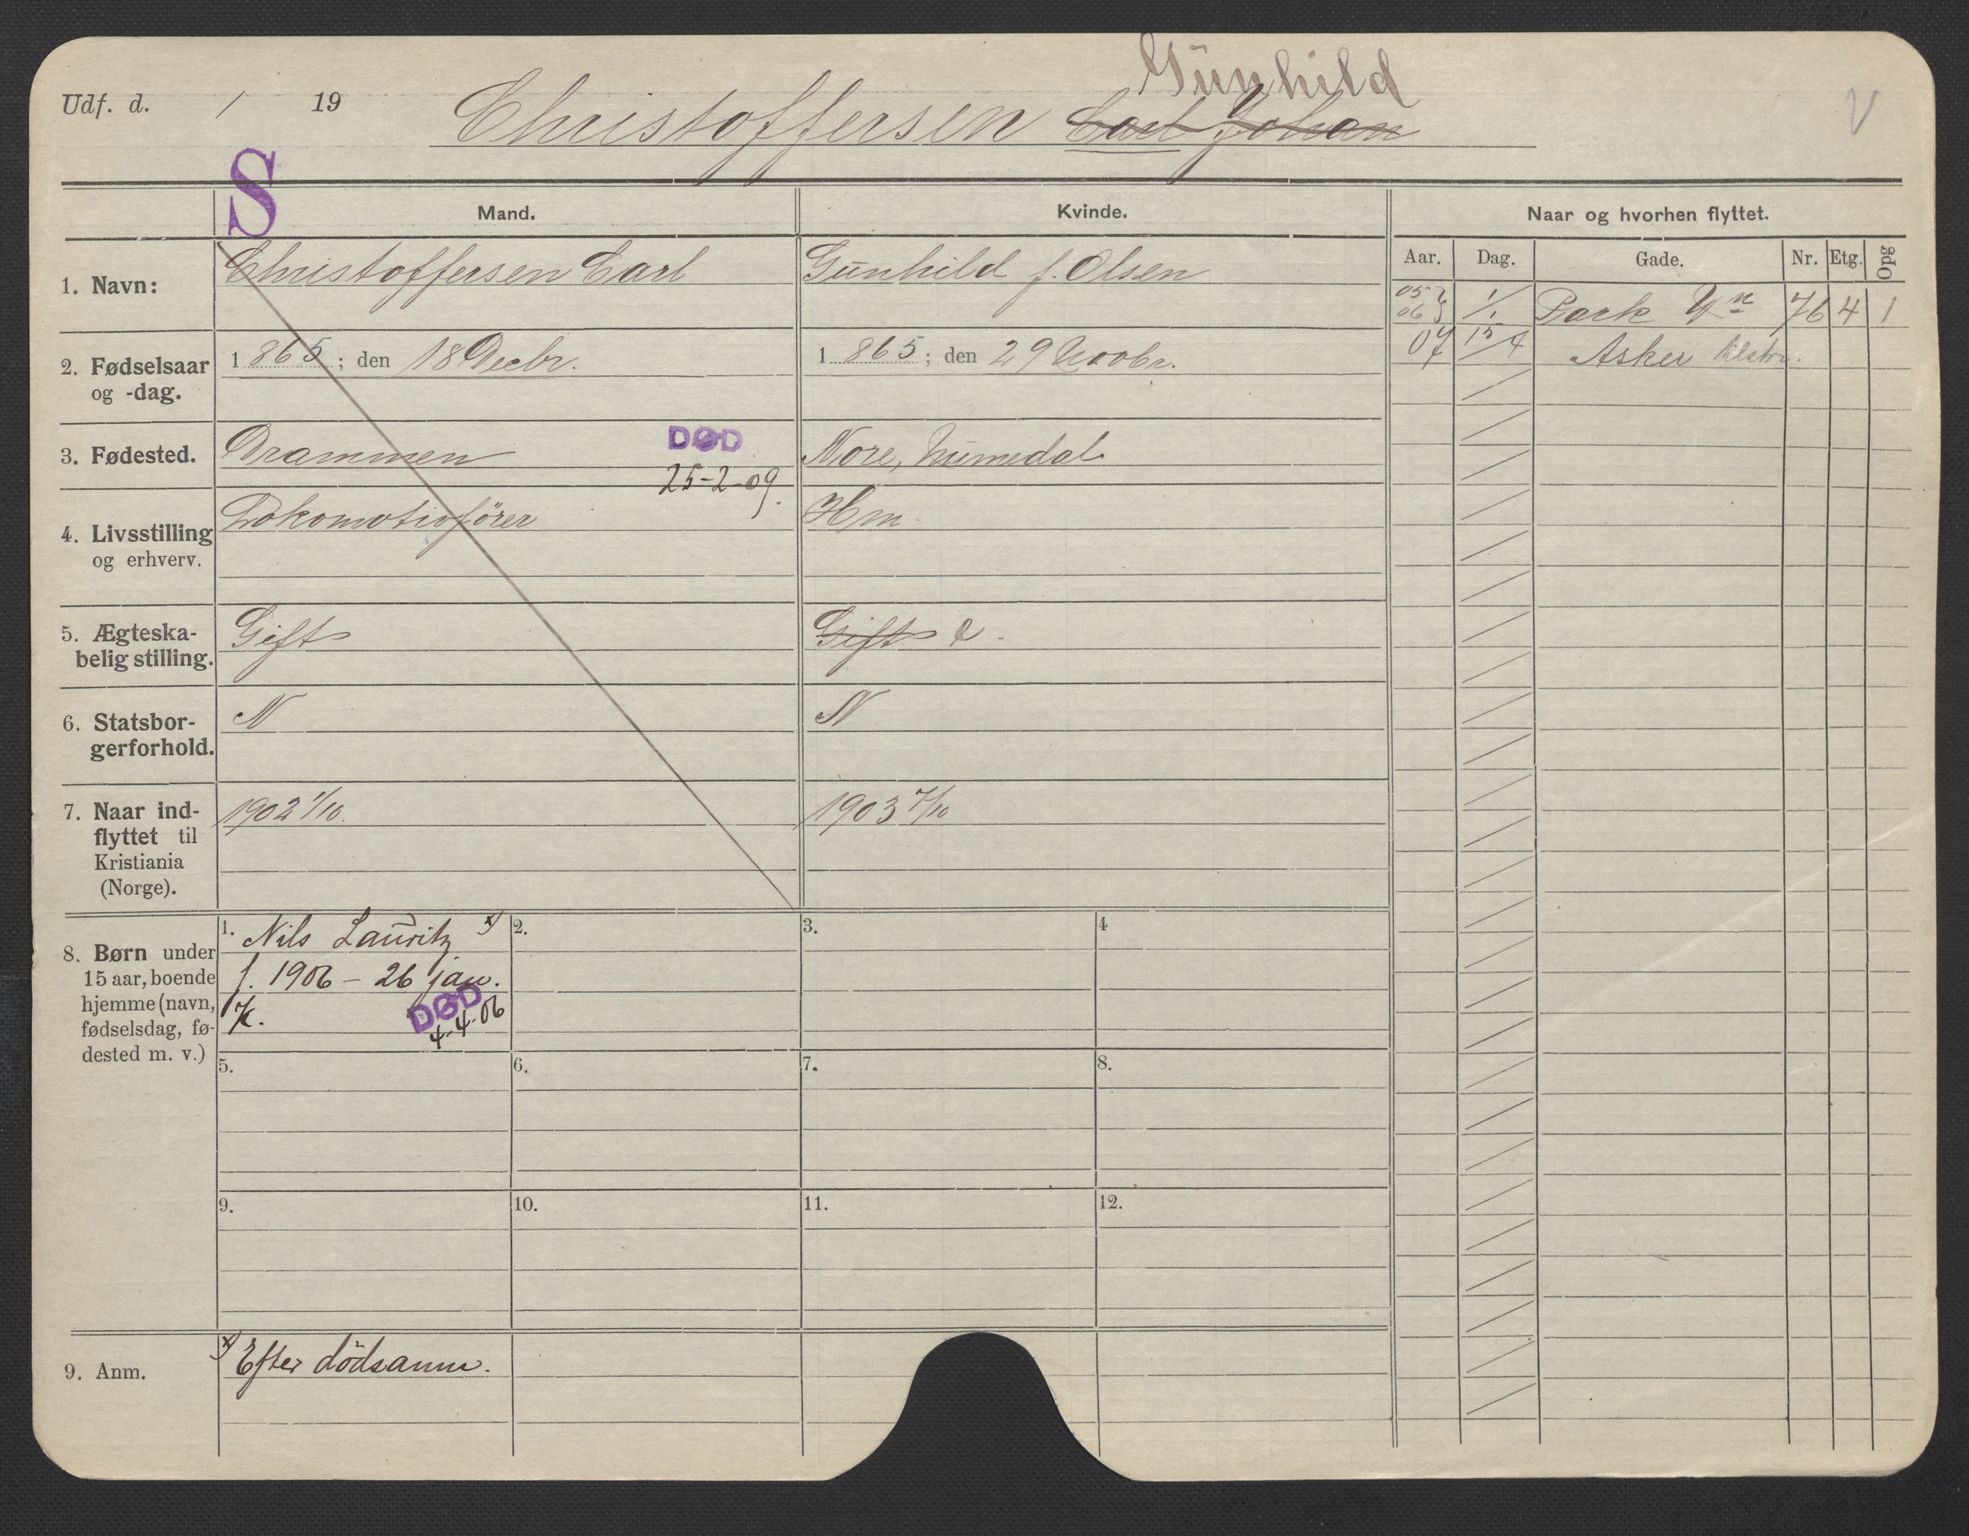 Gunhild
Udf. d. / 19
Christoffersen Carl Johan
V
S
Mand.
Kvinde.
Naar og hvorhen flyttet.
Aar. Dag. Gade. Nr. Etg. Opg
1. Navn:
Christoffersen Carl
Gunhild f. Olsen
05
06 1/1 Park 76 4 1
07 15/4 Asker
2. Fødselsaar
og -dag.
1865; den 18 Decbr.
1865; den 29 Novbr.
3. Fødested.
Drammen
DØD
25-2-09.
Nore, Numedal
4. Livsstilling
og erhverv.
Lokomotivfører
Hm
5. Ægteska-
belig stilling.
Gift
Gift e.
6. Statsbor-
gerforhold.
N
N
7. Naar ind-
flyttet til
Kristiania
(Norge).
1902 1/10.
1903 7/10
8. Børn under
15 aar, boende
hjemme (navn,
fødselsdag, fø-
dested m. v.)
1. Nils Lauritz x)
f. 1906 - 26 jan.
K.
DØD
4-4-06
2.
3.
4
5.
6.
7.
8.
9.
10.
11.
12.
9. Anm.
x) Efter dødsanm.